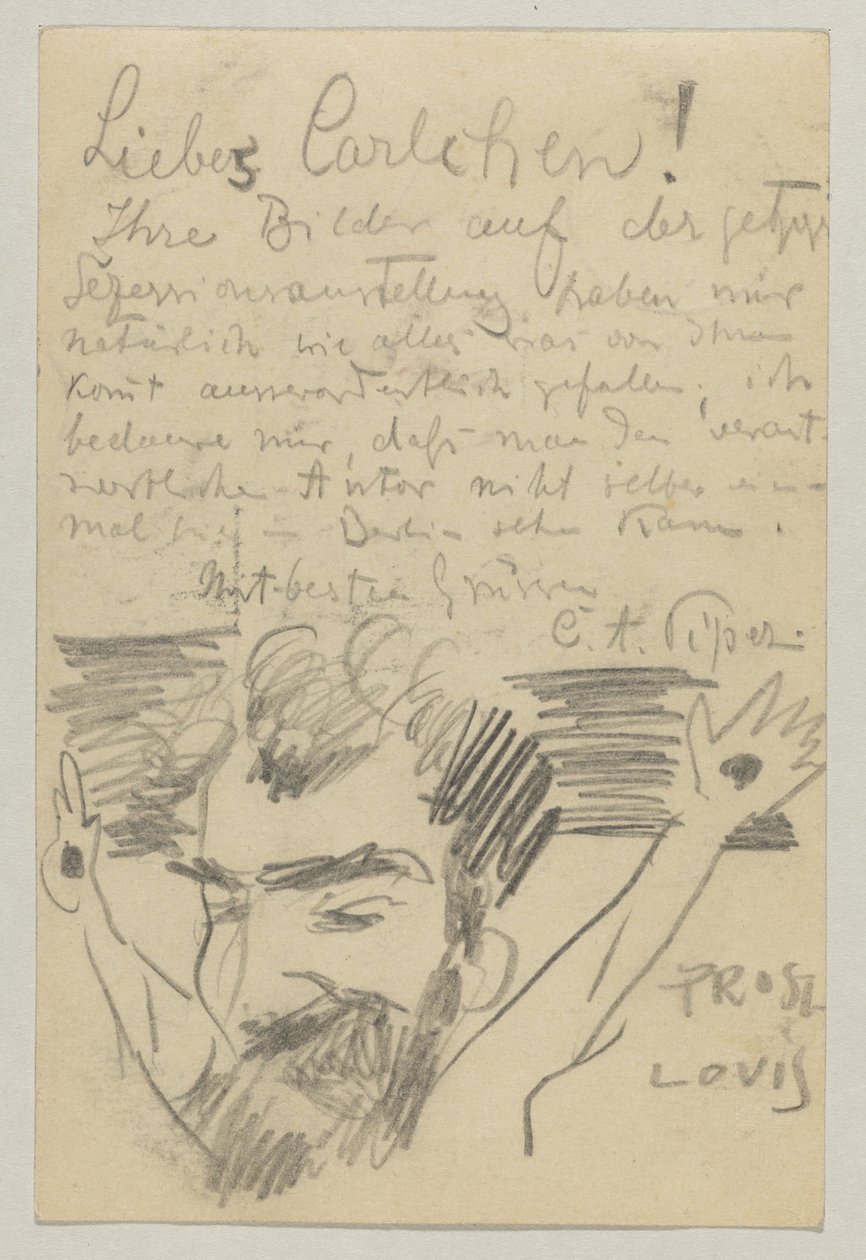 Liebes Carlchen!
Ihre Bilder auf der jetzigen
Sezessionsausstellung haben mir
natürlich wie alles was von Ihnen
komt ausserordentlich gefallen; ich
bedaure nur, daß man den verant-
wortlichen Autor nicht selber ein-
mal hier in Berlin sehen kann.
Mit besten Grüssen
C. A. Piper.
PROST
LOVIS